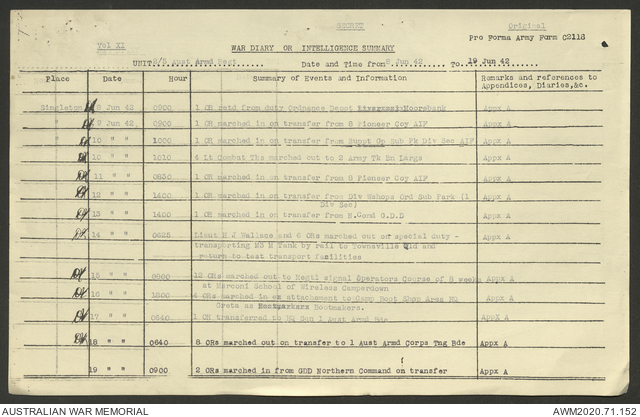 SECRET
Original
Pro Forma Army Form C2118
Vol XI
WAR DIARY OR INTELLIGENCE SUMMARY
UNIT 2/5 Aust Armd Regt...... Date and Time from 8 Jun 42..... To. 19 Jun 42
Place Date Hour Summary of Events and Information Remarks and references to Appendices, Diaries,&c.
Singleton 8 Jun 42 0900 1 OR retd from duty Ordnance Depot Moorebank Appx A
" 9 Jun 42 0900 1 OR marched in on transfer from 8 Pioneer Coy AIF Appx A
" 10 " " 1000 1 OR marched in on transfer from Suppt Gp Sub Pk Div Sec AIF Appx A
10 " " 1010 4 Lt Combat Tks marched out to 2 Army Tk Bn Largs Appx A
11 " " 0830 1 OR marched in on transfer from 8 Pioneer Coy AIF Appx A
12 " " 1400 1 OR marched in on transfer from Div Wshops Ord Sub Park (1
Div Sec) Appx A
13 " " 1400 1 OR marched in on transfer from N.Comd G.D.D Appx A
14 " " 0625 Lieut H J Wallace and 6 ORs marched out on special duty -
transporting M3 M Tank by rail to Townsville Qld and
return to test transport facilities Appx A
15 " " 0800 12 ORs marched out to Regtl Signal Operators Course of 8 weeks
at Marconi School of Wireless Camperdown Appx A
16 " " 1800 4 ORs marched in on attachment to Camp Boot Shop Area HQ
Greta as Bootmakers. Appx A
17 " " 0640 1 OR transferred to HQ Sqn 1 Aust Armd Bde Appx A
18 " " 0640 8 ORs marched out on transfer to 1 Aust Armd Corps Tng Bde Appx A
19 " " 0900 2 ORs marched in from GDD Northern Command on transfer Appx A
AUSTRALIAN WAR MEMORIAL
AWM2020.71.152